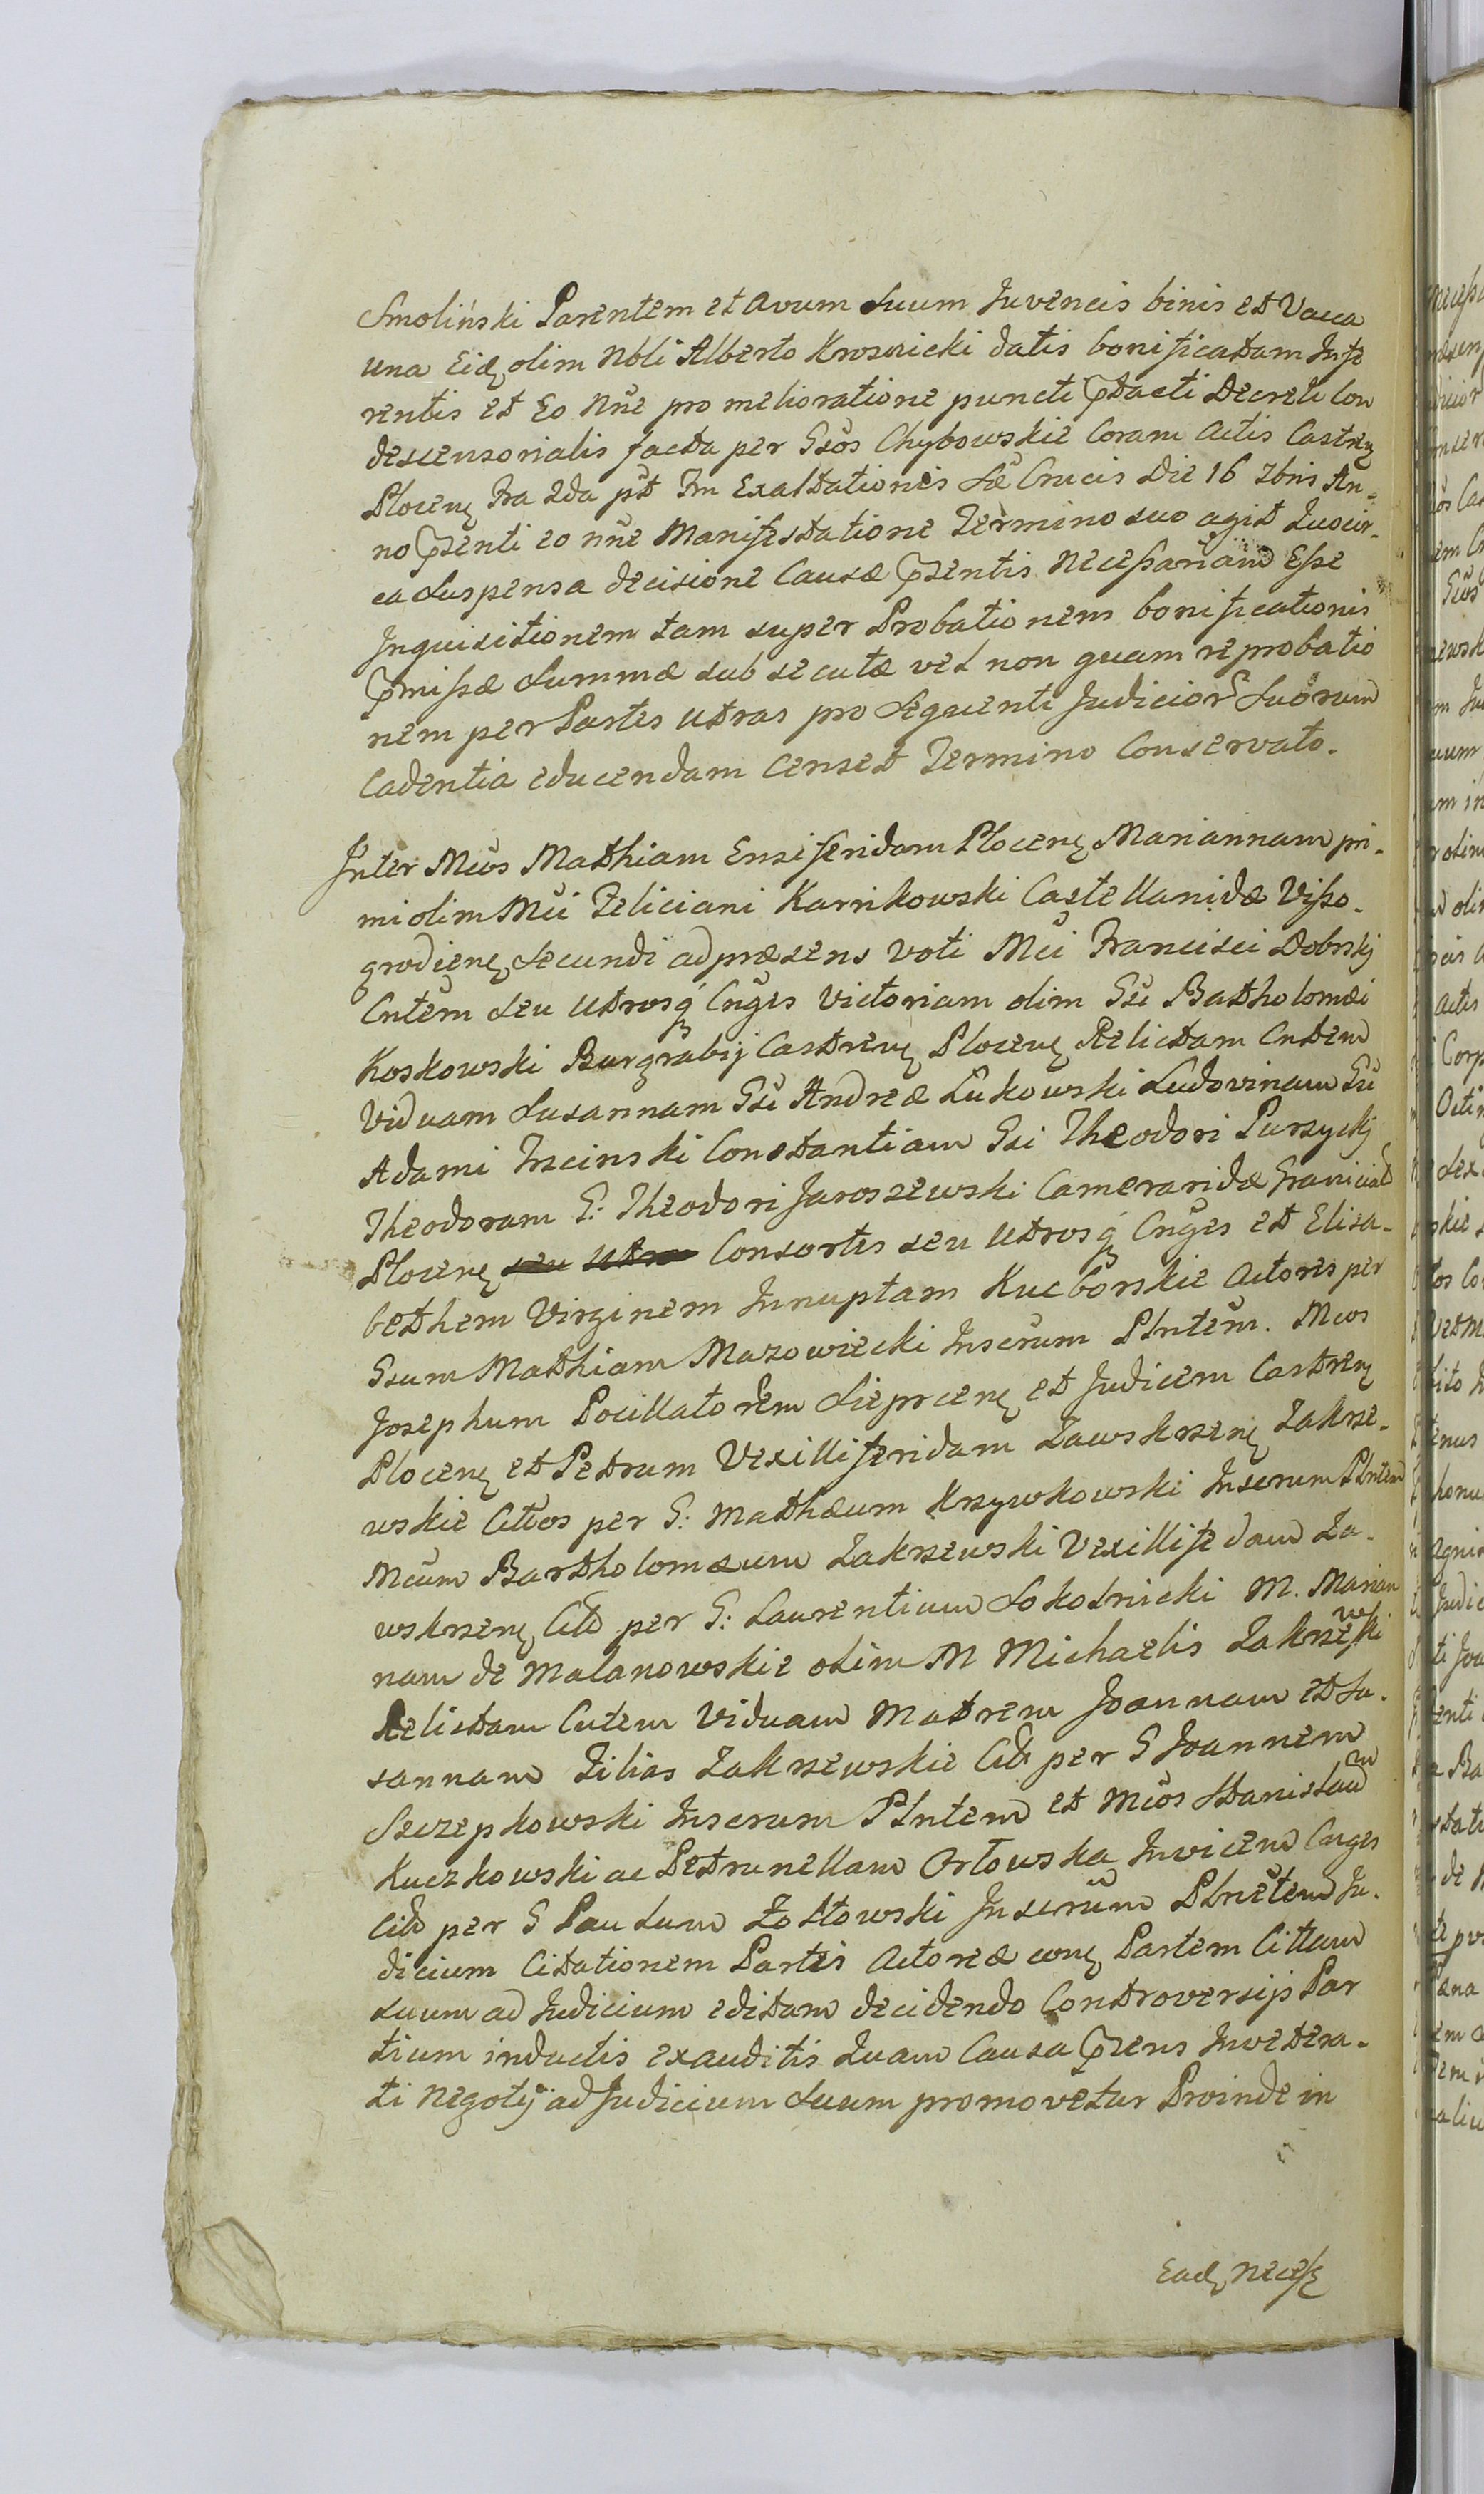 Smoliński Parentem et Avum Suum Juvencis binis et Vacca
una Eidę olim Nbli Alberto Krosnicki datis bonificatam Infe
rentis et Eo Nñe pro melioratione puncti ꝑtacti Decreti Con
descensorialis facta per Gsõs Chybowskie Coram Actis Castrenę
Plocenę Fra 2da pȏt Fm Exaltationis Sæ Crucis Die 16 7bris An-
no ꝑsenti eo nñe Manifestatione Termino suo agit Quocir-
ca Suspensa decisione Causæ ꝑsentis necessariam Esse
Inquisitionem tam super Probationem bonificationis
ꝑmissæ Summæ subsecutæ vel non quam reprobatio
nem per Partes utras pro Sequenti Judicior Suorum
Cadentia educendam Censet Termino Conservato.
Inter Mcõs Mathiam Ensiferidam Plocenę Mariannam pri-
mi olim Mci Feliciani Karnkowski Castellanidæ Visso-
grodienę Secundi ad præsens voti Mci Francisci Dobrskj
Cntem seu Utrosq Cnges Victoriam olim Gsi Bartholomæi
Koskowski Burgrabij Castrenę Plocenę Relictam Cntem
Viduam Susannam Gsi Andreæ Łukowski Ludovinam Gsi
Adami Trzcinski Constantiam Gsi Theodori Purzyckj
Theodoram G: Theodori Jaroszewski Cameraridæ Granicial
Plocenę seu Utro Consortes seu Utrosq Cnges et Elisa-
bethem Virginem Innuptam Kucborskie Actores per
Gsum Mathiam Mazowiecki Inserum Plntem. Mcos
Josephum Pocillatorem Sieprcenę et Judicem Castrenę
Plocenę et Petrum Vexilliferidam Zawskrzenę Zakrze-
wskie Cittos per G: Mathæum Krzywkowski Inserum Plntem
Mcum Bartholomæum Zakrzewski Vexillifedam Za-
wskrzenę Citt per G: Laurentium Sokolnicki M. Marian
nam de Malanowskie olim M Michaelis Zakrzewski
Relictam Cntem Viduam Matrem Joannam et Su-
sannam Filias Zakrzewskie Citt per G Joannem
Szczepkowski Inserum Plntem et Mcõs Stanislaum
Kuczkowski ac Petrunellam Orłowska Invicem Cnges
Citt per G Paulum Zołtowski Inserum Plnetem Ju-
dicium Citationem Partis Actoreæ conę Partem Cittam
Suum ad Judicium editam decidendo Controversijs Par
tium inductis exauditis Quam Causa ꝑsens Invetera-
ti Negotij ad Judicium Suum promovetur Proinde in
Eadę necessę